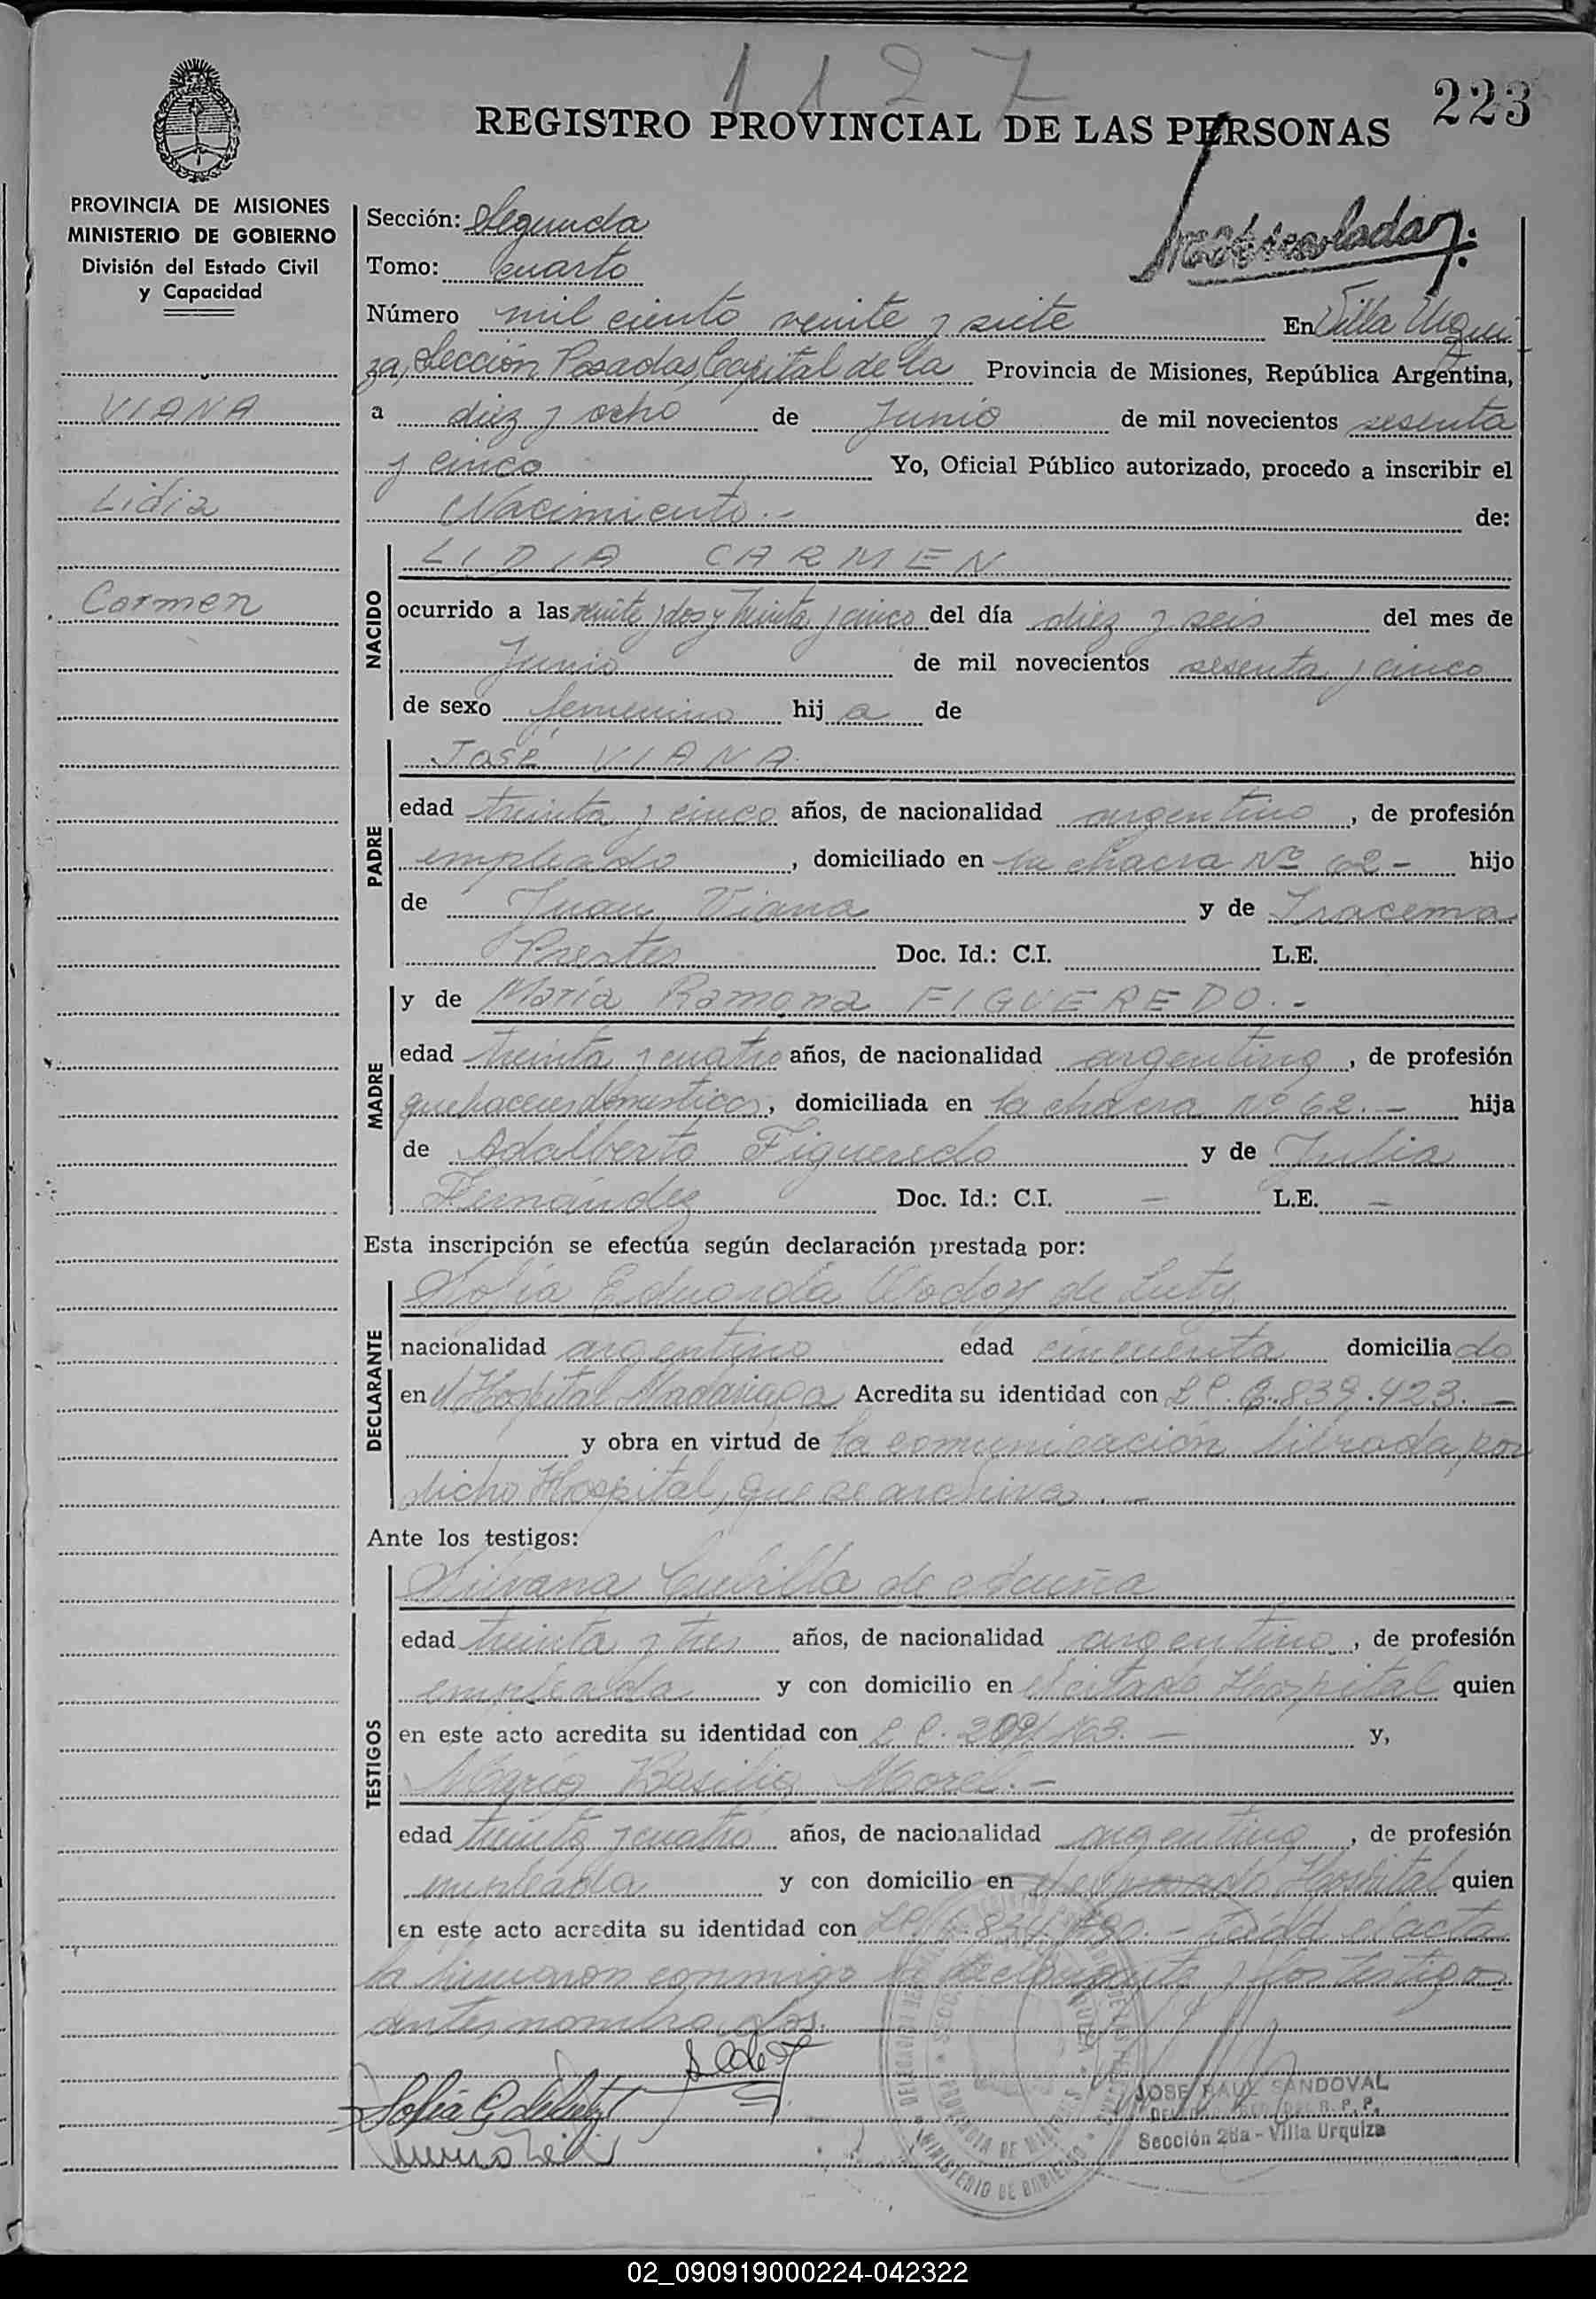 1127
223
REGISTRO PROVINCIAL DE LAS PERSONAS
PROVINCIA DE MISIONES
MINISTERIO DE GOBIERNO
División del Estado Civil
y Capacidad
VIANA
Lidia
Carmen
Sección: Segunda
Tomo: cuarto
Número mil ciento veinte y siete En Villa Urqui
za, Sección Posadas, Capital de la Provincia de Misiones, República Argentina,
a diez y ocho de Junio de mil novecientos sesenta
y cinco Yo, Oficial Público autorizado, procedo a inscribir el
Nacimiento.- de:
NACIDO
LIDIA CARMEN
ocurrido a las veinte y dos y treinta y cinco del día diez y seis del mes de
Junio de mil novecientos sesenta y cinco
de sexo femenino hij a de
PADRE
José VIANA
edad treinta y cinco años, de nacionalidad argentino, de profesión
empleado, domiciliado en la chacra Nº 62- hijo
de Juan Viana y de Iracema
Prestes Doc. Id.: C.I. L.E.
MADRE
y de María Ramona FIGUEREDO.-
edad treinta y cuatro años, de nacionalidad argentina, de profesión
quehaceres domesticos, domiciliada en la chacra Nº 62.- hija
de Adalberto Figueredo y de Julia
Fernández Doc. Id.: C.I. - L.E. -
Esta inscripción se efectúa según declaración prestada por:
DECLARANTE
Sofia Eduarda Godoy de
nacionalidad argentina edad cincuenta domicilia do
en el Hospital Madariaga Acredita su identidad con 839.423.-
y obra en virtud de la comunicación librada por
dicho Hospital, que se archiva.-
Ante los testigos:
TESTIGOS
Silvana Cubilla de Acuña
edad treinta y tres años, de nacionalidad argentina, de profesión
empleada y con domicilio en el citado Hospital quien
en este acto acredita su identidad con 163.- y,
María Basilia Morel.-
edad treinta y cuatro años, de nacionalidad argentina, de profesión
empleada y con domicilio en Hospital quien
en este acto acredita su identidad con Leída el acta
la firmaron conmigo la declarante y los testigos
antes nombrados.
JOSE RAUL SANDOVAL
Sección 2da - Villa Urquiza
MINISTERIO DE GOBIERNO
PROVINCIA DE MISIONES
02_090919000224-042322